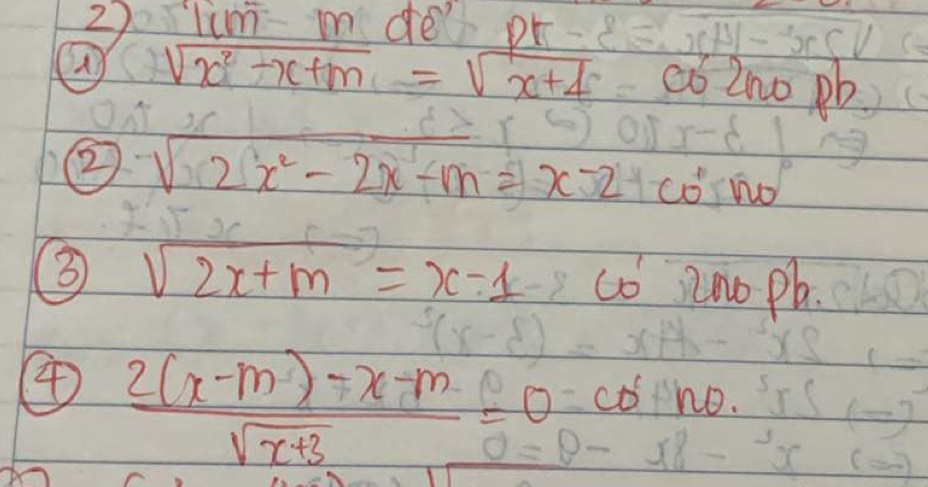 2) Tìm m để pt
① √(x² - x + m) = √(x+1) có 2no pb.
② √(2x² - 2x - m) = x - 2 có no
③ √(2x + m) = x - 1 có 2no pb.
④ (2(x-m) - x - m)/√(x+3) = 0 có no.